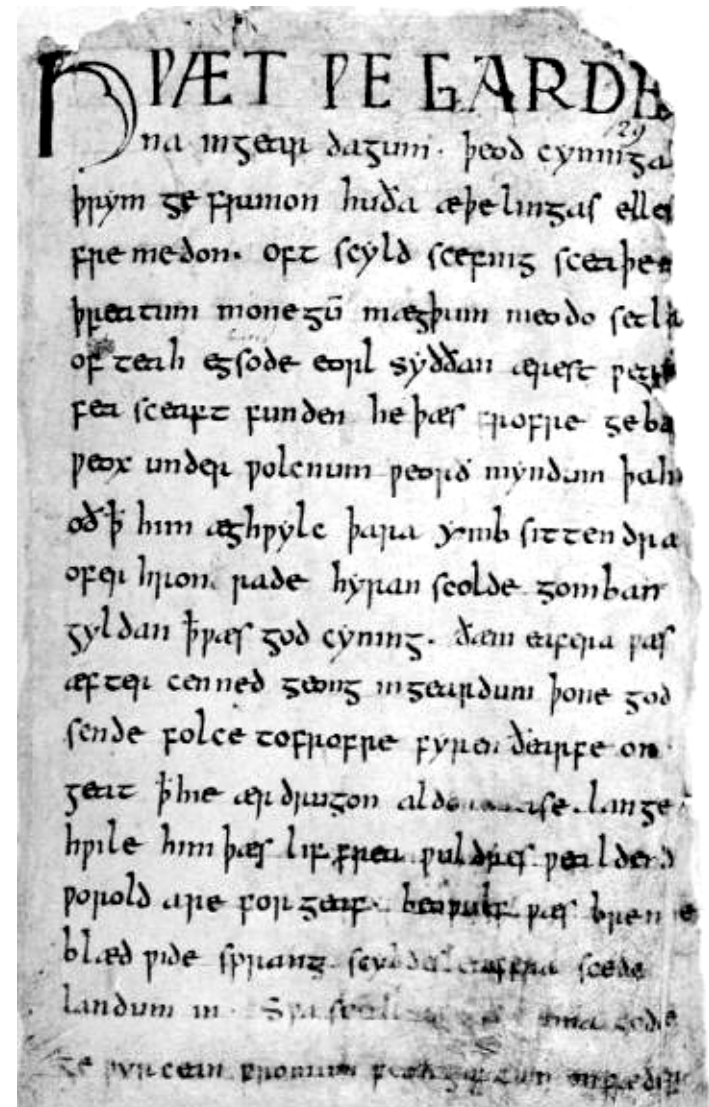 HǷÆT ǷE GARDE
129
na ingear dagum. þeod cyninga
þrym ge frunon huða æþelingas ellen
fremedon. oft scyld scefing sceaþen
þreatum monegū mægþum meodo setla
of teah egsode eorl syððan ærest ƿear
fea sceaft funden he þæs frofre geba
ƿeox under ƿolcnum ƿeorð myndum þah
oð ꝥ him æghƿylc þara ymb sittendra
ofer hron rade hyran scolde gomban
gyldan ꝥ ƿæs god cyning. ðæm eafera ƿæs
æfter cenned geong ingeardum þone god
sende folce tofrofre fyren ðearfe on
geat ꝥ hie ær drugon lange
hƿile him þæs lif frea ƿuldres ƿealdend
ƿorold are for geaf. beoƿulf ƿæs breme
blæd ƿide sprang scyldes eafera scede
landum in. Sƿa sceal guma gode
ge ƿyrcean fromum feoh giftum on fæder